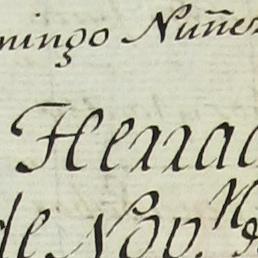 mingo Nuñez
Herrad
de Nov.